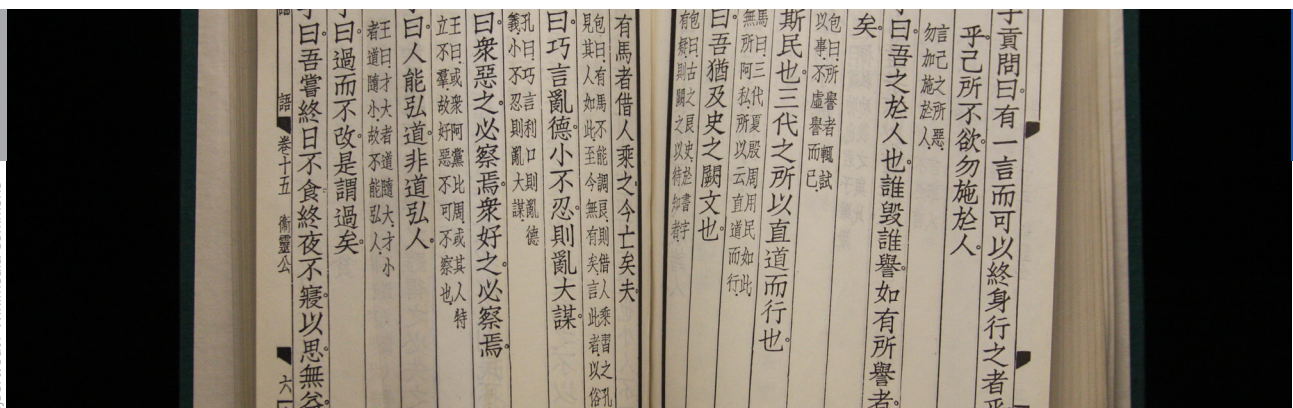 子貢問曰有一言而可以終身行之者乎
乎己所不欲勿施於人
言己之所惡
勿加施於人
子曰吾之於人也誰毀誰譽如有所譽者
矣
包曰所譽者輒試
以事不虛譽而已
斯民也三代之所以直道而行也
馬曰三代夏殷周用民如此
無所阿私所以云直道而行
曰吾猶及史之闕文也
包曰古之良史於書字
有疑則闕之以待知者
有馬者借人乘之今亡矣夫
包曰有馬不能調良則借人乘習之孔
見其人如此至今無有矣言此者以俗
曰巧言亂德小不忍則亂大謀
孔曰巧言利口則亂德
義小不忍則亂大謀
曰衆惡之必察焉衆好之必察焉
王曰或衆阿黨比周或其人特
立不羣故好惡不可不察也
曰人能弘道非道弘人
王曰才大者道隨大才小
者道隨小故不能弘人
子曰過而不改是謂過矣
子曰吾嘗終日不食終夜不寢以思無益
語 卷十五 衞靈公 六